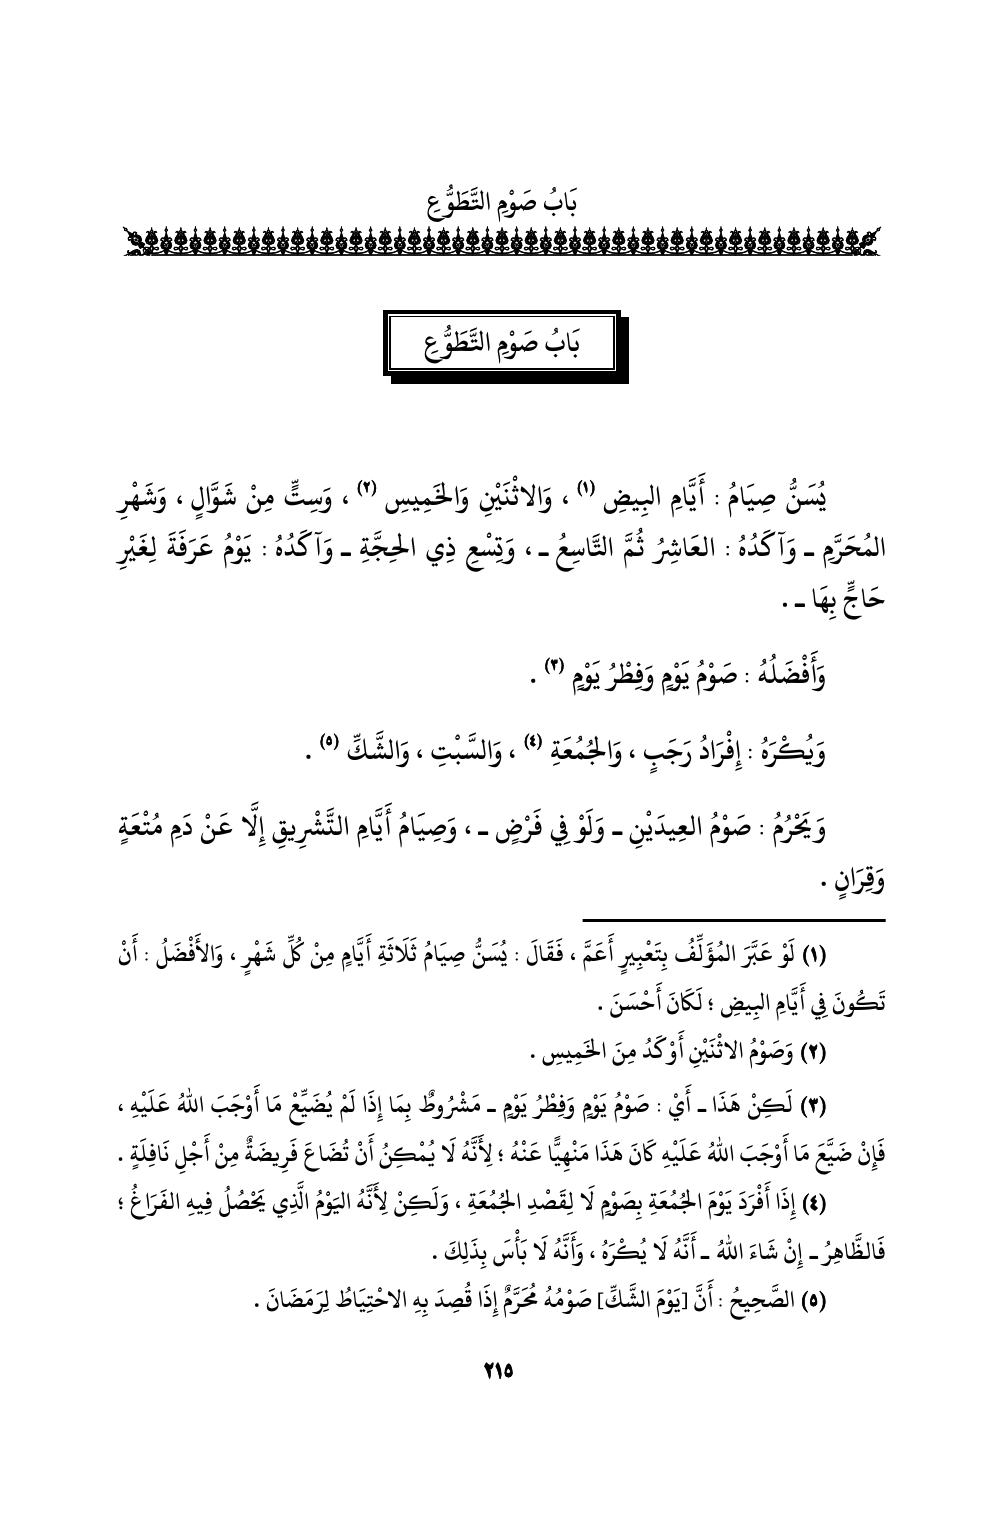 بَابُ صَوْمِ التَّطَوُّعِ
بَابُ صَوْمِ التَّطَوُّعِ
يُسَنُّ صِيَامُ : أَيَّامِ البِيضِ (١) ، وَالاثْنَيْنِ وَالخَمِيسِ (٢) ، وَسِتٍّ مِنْ شَوَّالٍ ، وَشَهْرِ
المُحَرَّمِ ـ وَآكَدُهُ : العَاشِرُ ثُمَّ التَّاسِعُ ـ ، وَتِسْعِ ذِي الحِجَّةِ ـ وَآكَدُهُ : يَوْمُ عَرَفَةَ لِغَيْرِ
حَاجٍّ بِهَا ـ .
وَأَفْضَلُهُ : صَوْمُ يَوْمٍ وَفِطْرُ يَوْمٍ (٣) .
وَيُكْرَهُ : إِفْرَادُ رَجَبٍ ، وَالجُمُعَةِ (٤) ، وَالسَّبْتِ ، وَالشَّكِّ (٥) .
وَيَحْرُمُ : صَوْمُ العِيدَيْنِ ـ وَلَوْ فِي فَرْضٍ ـ ، وَصِيَامُ أَيَّامِ التَّشْرِيقِ إِلَّا عَنْ دَمِ مُتْعَةٍ
وَقِرَانٍ .
(١) لَوْ عَبَّرَ المُؤَلِّفُ بِتَعْبِيرٍ أَعَمَّ ، فَقَالَ : يُسَنُّ صِيَامُ ثَلَاثَةِ أَيَّامٍ مِنْ كُلِّ شَهْرٍ ، وَالأَفْضَلُ : أَنْ
تَكُونَ فِي أَيَّامِ البِيضِ ؛ لَكَانَ أَحْسَنَ .
(٢) وَصَوْمُ الاثْنَيْنِ أَوْكَدُ مِنَ الخَمِيسِ .
(٣) لَكِنْ هَذَا ـ أَيْ : صَوْمُ يَوْمٍ وَفِطْرُ يَوْمٍ ـ مَشْرُوطٌ بِمَا إِذَا لَمْ يُضَيِّعْ مَا أَوْجَبَ اللهُ عَلَيْهِ ،
فَإِنْ ضَيَّعَ مَا أَوْجَبَ اللهُ عَلَيْهِ كَانَ هَذَا مَنْهِيًّا عَنْهُ ؛ لِأَنَّهُ لَا يُمْكِنُ أَنْ تُضَاعَ فَرِيضَةٌ مِنْ أَجْلِ نَافِلَةٍ .
(٤) إِذَا أَفْرَدَ يَوْمَ الجُمُعَةِ بِصَوْمٍ لَا لِقَصْدِ الجُمُعَةِ ، وَلَكِنْ لِأَنَّهُ اليَوْمُ الَّذِي يَحْصُلُ فِيهِ الفَرَاغُ ؛
فَالظَّاهِرُ ـ إِنْ شَاءَ اللهُ ـ أَنَّهُ لَا يُكْرَهُ ، وَأَنَّهُ لَا بَأْسَ بِذَلِكَ .
(٥) الصَّحِيحُ : أَنَّ [يَوْمَ الشَّكِّ] صَوْمُهُ مُحَرَّمٌ إِذَا قُصِدَ بِهِ الاحْتِيَاطُ لِرَمَضَانَ .
٢١٥